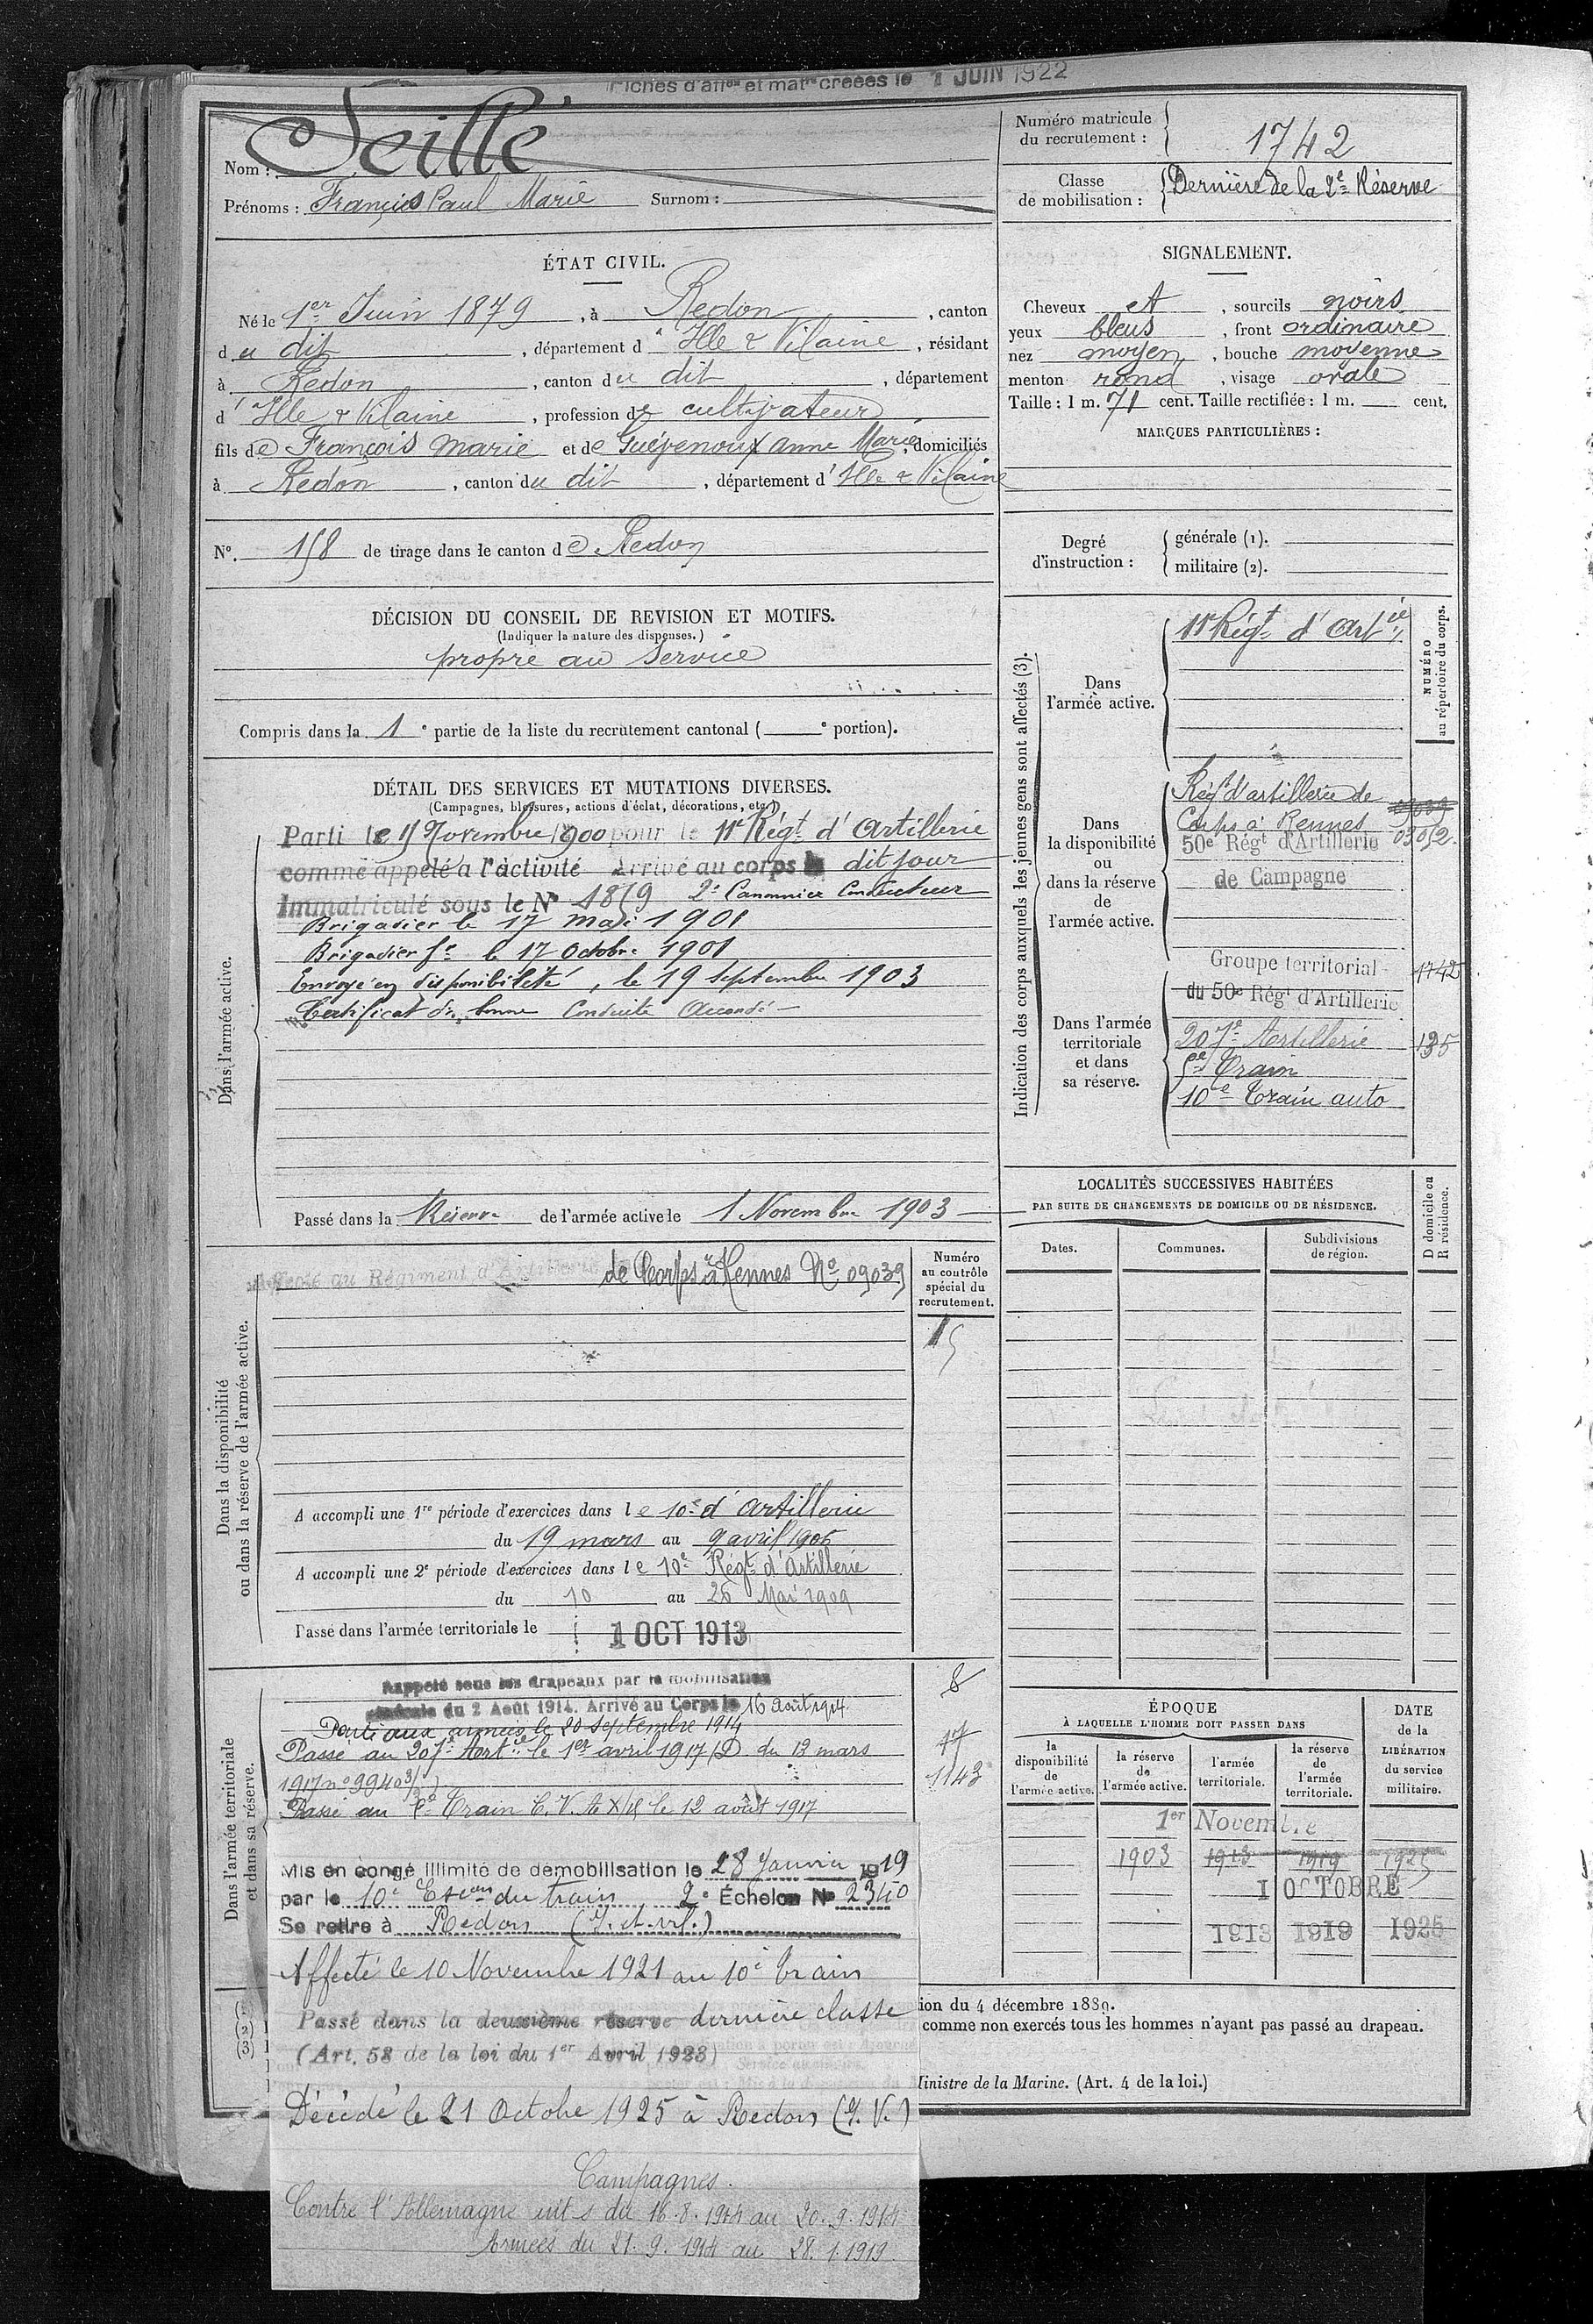 Fiches d'aff^on et mat^le créées le 1 JUIN 1922
Nom : Seillé
Prénoms : François Paul Marie Surnom :
Numéro matricule du recrutement : 1742
Classe de mobilisation : Dernière de la 2e Réserve
ÉTAT CIVIL.
Né le 1er Juin 1879, à Redon, canton
du dit, département d'Ille & Vilaine, résidant
à Redon, canton du dit, département
d'Ille & Vilaine, profession de cultivateur
fils de François Marie et de Guévenoux Anne Marie, domiciliés
à Redon, canton du dit, département d'Ille & Vilaine
N°. 158 de tirage dans le canton de Redon
SIGNALEMENT.
Cheveux et, sourcils noirs
yeux bleus, front ordinaire
nez moyen, bouche moyenne
menton rond, visage ovale
Taille : 1 m. 71 cent. Taille rectifiée : 1 m. cent.
MARQUES PARTICULIÈRES :
Degré d'instruction :
générale (1).
militaire (2).
DÉCISION DU CONSEIL DE REVISION ET MOTIFS.
(Indiquer la nature des dispenses.)
propre au service
Compris dans la 1e partie de la liste du recrutement cantonal ( e portion).
DÉTAIL DES SERVICES ET MUTATIONS DIVERSES.
(Campagnes, blessures, actions d'éclat, décorations, etc.)
Dans l'armée active.
Parti le 15 Novembre 1900 pour le 11e Régt d'Artillerie
comme appelé à l'activité Arrivé au corps le dit jour
Immatriculé sous le N° 1859 2e Canonnier Conducteur
Brigadier le 17 mai 1901
Brigadier fr le 17 Octobre 1901
Envoyé en disponibilité, le 19 Septembre 1903
Certificat de bonne Conduite Accordé
Passé dans la Réserve de l'armée active le 1 Novembre 1903
Indication des corps auxquels les jeunes gens sont affectés (3).
NUMÉRO au répertoire du corps.
Dans l'armée active.
11e Régt d'Artie
Dans la disponibilité ou dans la réserve de l'armée active.
Régt d'artillerie de
Corps à Rennes 09039
50e Régt d'Artillerie 03052
de Campagne
Dans l'armée territoriale et dans sa réserve.
Groupe territorial 1742
du 50e Régt d'Artillerie
207e Artillerie 135
5e Train
10e Train auto
LOCALITÉS SUCCESSIVES HABITÉES
PAR SUITE DE CHANGEMENTS DE DOMICILE OU DE RÉSIDENCE.
Dates. Communes. Subdivisions de région. D domicile ou R résidence.
Dans la disponibilité ou dans la réserve de l'armée active.
Affecté au Régiment d'Artillerie de Corps à Rennes No 09039
Numéro au contrôle spécial du recrutement.
15
A accompli une 1re période d'exercices dans le 10e d'Artillerie
du 19 mars au 9 avril 1906
A accompli une 2e période d'exercices dans le 10e Régt d'Artillerie
du 10 au 26 Mai 1909
Passé dans l'armée territoriale le 1 OCT 1913
Dans l'armée territoriale et dans sa réserve.
Rappelé sous les drapeaux par la mobilisation
générale du 2 Août 1914. Arrivé au Corps le 16 Août 1914
Parti aux armées le 20 Septembre 1914
Passé au 207e Artie le 1er avril 1917 (D. du 13 mars
1917 n° 9940 3/3)
Passé au 5e Train le 12 août 1917
8
17
1143
Mis en congé illimité de démobilisation le 28 Janvier 1919
par le 10e Escon du train 2e Échelon N° 2340
Se retire à Redon (I. et Vil.)
Affecté le 10 Novembre 1921 au 10e train
Passé dans la deuxième réserve dernière classe
(Art. 58 de la loi du 1er Avril 1923)
Décédé le 21 Octobre 1925 à Redon (I. V.)
Campagnes.
Contre l'Allemagne int s du 16.8.1914 au 20.9.1914
Armées du 21.9.1914 au 28.1.1919
ÉPOQUE
À LAQUELLE L'HOMME DOIT PASSER DANS
DATE de la LIBÉRATION du service militaire.
la disponibilité de l'armée active. la réserve de l'armée active. l'armée territoriale. la réserve de l'armée territoriale.
1er Novembre
1903 1913 1919 1925
1 OCTOBRE
1913 1919 1925
(1)
(2)
(3)
ion du 4 décembre 1889.
comme non exercés tous les hommes n'ayant pas passé au drapeau.
Ministre de la Marine. (Art. 4 de la loi.)